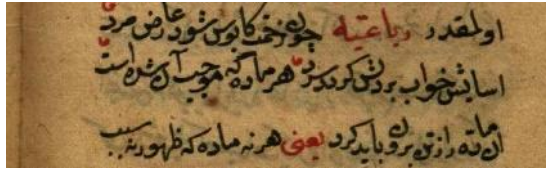 اولمقدر رباعیه چون زحمت کابوس شود عارض مرد
اسایش خواب بر تنش کردد سرد هر ماده که موجب آن شده است
آن ماده را ز تن برون باید کرد یعنی هر نه ماده که ظهورینه سبب